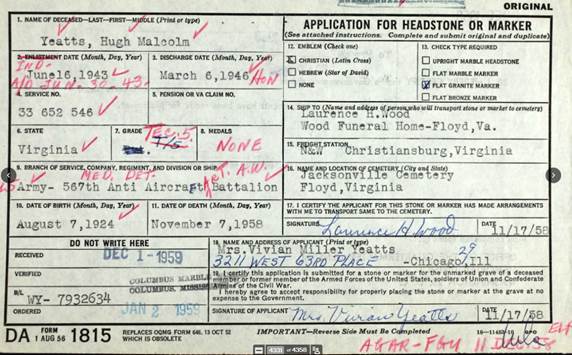 ORIGINAL
1. NAME OF DECEASED—LAST—FIRST—MIDDLE (Print or type)
Yeatts, Hugh Malcolm
APPLICATION FOR HEADSTONE OR MARKER
(See attached instructions. Complete and submit original and duplicate)
2. ENLISTMENT DATE (Month, Day, Year)
IND.
June16,1943
A/D JUN. 30-43-
3. DISCHARGE DATE (Month, Day, Year)
March 6,1946 HON
12. EMBLEM (Check one)
CHRISTIAN (Latin Cross)
HEBREW (Star of David)
NONE
13. CHECK TYPE REQUIRED
UPRIGHT MARBLE HEADSTONE
FLAT MARBLE MARKER
FLAT GRANITE MARKER
FLAT BRONZE MARKER
4. SERVICE NO.
33 652 546
5. PENSION OR VA CLAIM NO.
14. SHIP TO (Name and address of person who will transport stone or marker to cemetery)
Laurence H.Wood
Wood Funeral Home-Floyd,Va.
6. STATE
Virginia
7. GRADE
TEC.5
T/5
8. MEDALS
NONE
15. FREIGHT STATION
N&W Christiansburg,Virginia
9. BRANCH OF SERVICE, COMPANY, REGIMENT, AND DIVISION OR SHIP
MED. DET. ART. A.W.
Army- 567th Anti Aircraft Battalion
16. NAME AND LOCATION OF CEMETERY (City and State)
Jacksonville Cemetery
Floyd,Virginia
10. DATE OF BIRTH (Month, Day, Year)
August 7,1924
11. DATE OF DEATH (Month, Day, Year)
November 7,1958
17. I CERTIFY THE APPLICANT FOR THIS STONE OR MARKER HAS MADE ARRANGEMENTS WITH ME TO TRANSPORT SAME TO THE CEMETERY.
SIGNATURE Laurence H. Wood 11/17/58
DO NOT WRITE HERE
RECEIVED DEC 1 - 1959
18. NAME AND ADDRESS OF APPLICANT (Print or type)
Mrs.Vivian Miller Yeatts
3211 WEST 63RD PLACE -Chicago,Ill 29
VERIFIED
COLUMBUS MARBLE
COLUMBUS, MISSISS
I certify this application is submitted for a stone or marker for the unmarked grave of a deceased member or former member of the Armed Forces of the United States, soldiers of Union and Confederate Armies of the Civil War.
I hereby agree to accept responsibility for properly placing the stone or marker at the grave at no expense to the Government.
B/L
WY- 7932634
ORDERED JAN 2 1959
SIGNATURE OF APPLICANT Mrs. Vivian Yeatts 11/17/58
DA FORM 1 AUG 56 1815
REPLACES OQMG FORM 646, 13 OCT 52 WHICH IS OBSOLETE
IMPORTANT—Reverse Side Must Be Completed
4331 of 4358